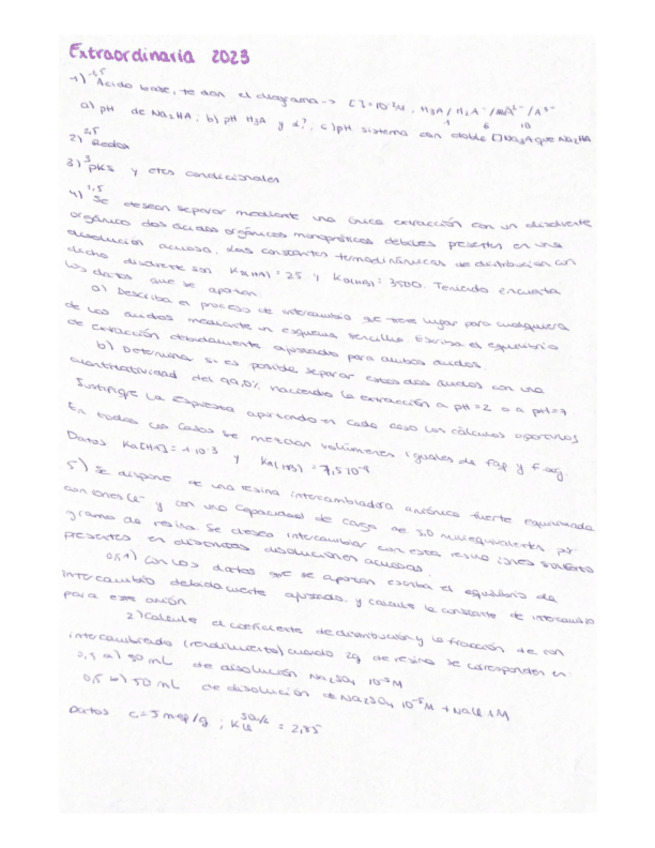 Extraordinaria 2023
1,5
1) Acido base, te dan el diagrama -> [ ]=10⁻²M, H₃A / H₂A⁻ / HA²⁻ / A³⁻
4 6 10
a) pH de Na₂HA; b) pH H₃A y α?, c) pH sistema con doble [] Na₃A que Na₂HA
2,5
2) Redox
3
3) pKs y ctes condicionales
1,5
4) Se desean separar mediante una única extracción con un disolvente
orgánico dos ácidos orgánicos monopróticos débiles presentes en una
disolución acuosa. Las constantes termodinámicas de distribución con
dicho disolvente son KD(HA) = 25 y KD(HB) = 3500. Teniendo en cuenta
los datos que se aportan:
a) Describa el proceso de intercambio que tiene lugar para cualquiera
de los ácidos mediante un esquema sencillo. Escriba el equilibrio
de extracción debidamente ajustado para ambos ácidos.
b) Determina si es posible separar estos dos ácidos con una
cuantitatividad del 99,0% haciendo la extracción a pH=2 o a pH=7
Justifique la respuesta aportando en cada caso los cálculos oportunos
En todos los casos se mezclan volúmenes iguales de Fap y F.org.
Datos Ka(HA) = 1·10⁻³ y Ka(HB) = 7,5·10⁻⁸
5) Se dispone de una resina intercambiadora aniónica fuerte equilibrada
con iones Cl⁻ y con una capacidad de carga de 5,0 miliequivalentes por
gramo de resina. Se desea intercambiar con esta resina iones sulfato
presentes en distintas disoluciones acuosas.
0,5 1) Con los datos que se aportan escriba el equilibrio de
intercambio debidamente ajustado, y calcule la constante de intercambio
para este anión
2) Calcule el coeficiente de distribución y la fracción de ion
intercambiado (rendimiento) cuando 2g de resina se corresponden en:
0,5 a) 50 mL de disolución Na₂SO₄ 10⁻⁵M
0,5 b) 50 mL de disolución de Na₂SO₄ 10⁻⁵M + NaCl 1M
Datos c=5 meq/g ; K = 2,85